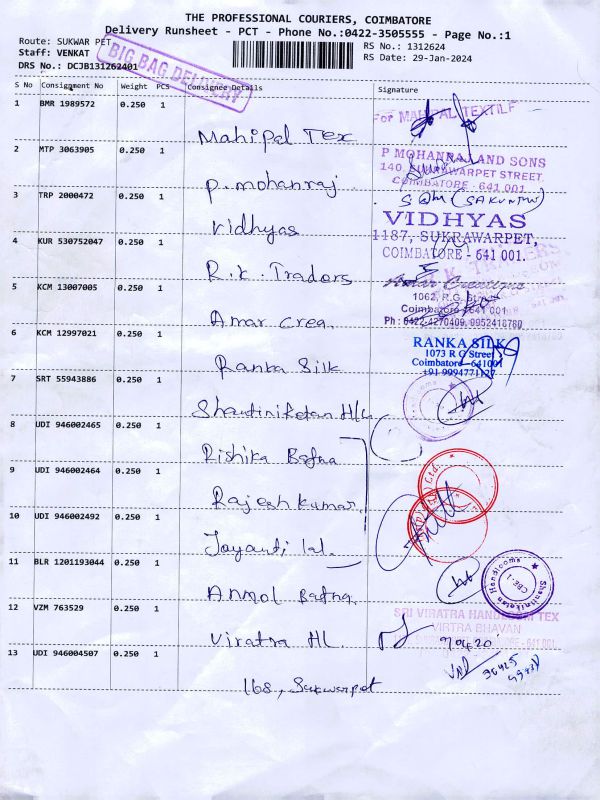 THE PROFESSIONAL COURIERS, COIMBATORE
Delivery Runsheet - PCT - Phone No.:0422-3505555 - Page No.:1
Route: SUKWAR PET
Staff: VENKAT
DRS No.: DCJB131262401
RS No.: 1312624
RS Date: 29-Jan-2024
BIG BAG DELIVERY
S No Consignment No Weight PCS Consignee Details Signature
1 BMR 1989572 0.250 1
Mahipal Tex
For MAHIPAL TEXTILE
2 MTP 3063905 0.250 1
P. mohanraj
P MOHANRAJ AND SONS
140, SUKRAWARPET STREET,
COIMBATORE - 641 001
3 TRP 2000472 0.250 1
Vidhyas
VIDHYAS
1187, SUKRAWARPET,
COIMBATORE - 641 001.
4 KUR 530752047 0.250 1
R.K. Traders
5 KCM 13007005 0.250 1
Amar Crea.
Amar Creations
1062, R.G. Street
Coimbatore 641 001
Ph : 0422-4270409, 9952418760
6 KCM 12997021 0.250 1
Ranka Silk
RANKA SILK
1073 R G Street
Coimbatore - 641001
+91 9994771127
7 SRT 55943886 0.250 1
Shantiniketan HL
8 UDI 946002465 0.250 1
Rishika Bafna
9 UDI 946002464 0.250 1
Rajesh Kumar
10 UDI 946002492 0.250 1
Jayanti lal.
11 BLR 1201193044 0.250 1
Anmol Bafna.
Shantiniketan Handlooms
CBE-1
12 VZM 763529 0.250 1
Viratra HL.
SRI VIRATRA HANDLOOM TEX
VIRTRA BHAVAN
COIMBATORE - 641 001.
13 UDI 946004507 0.250 1
168, Sukwarpet